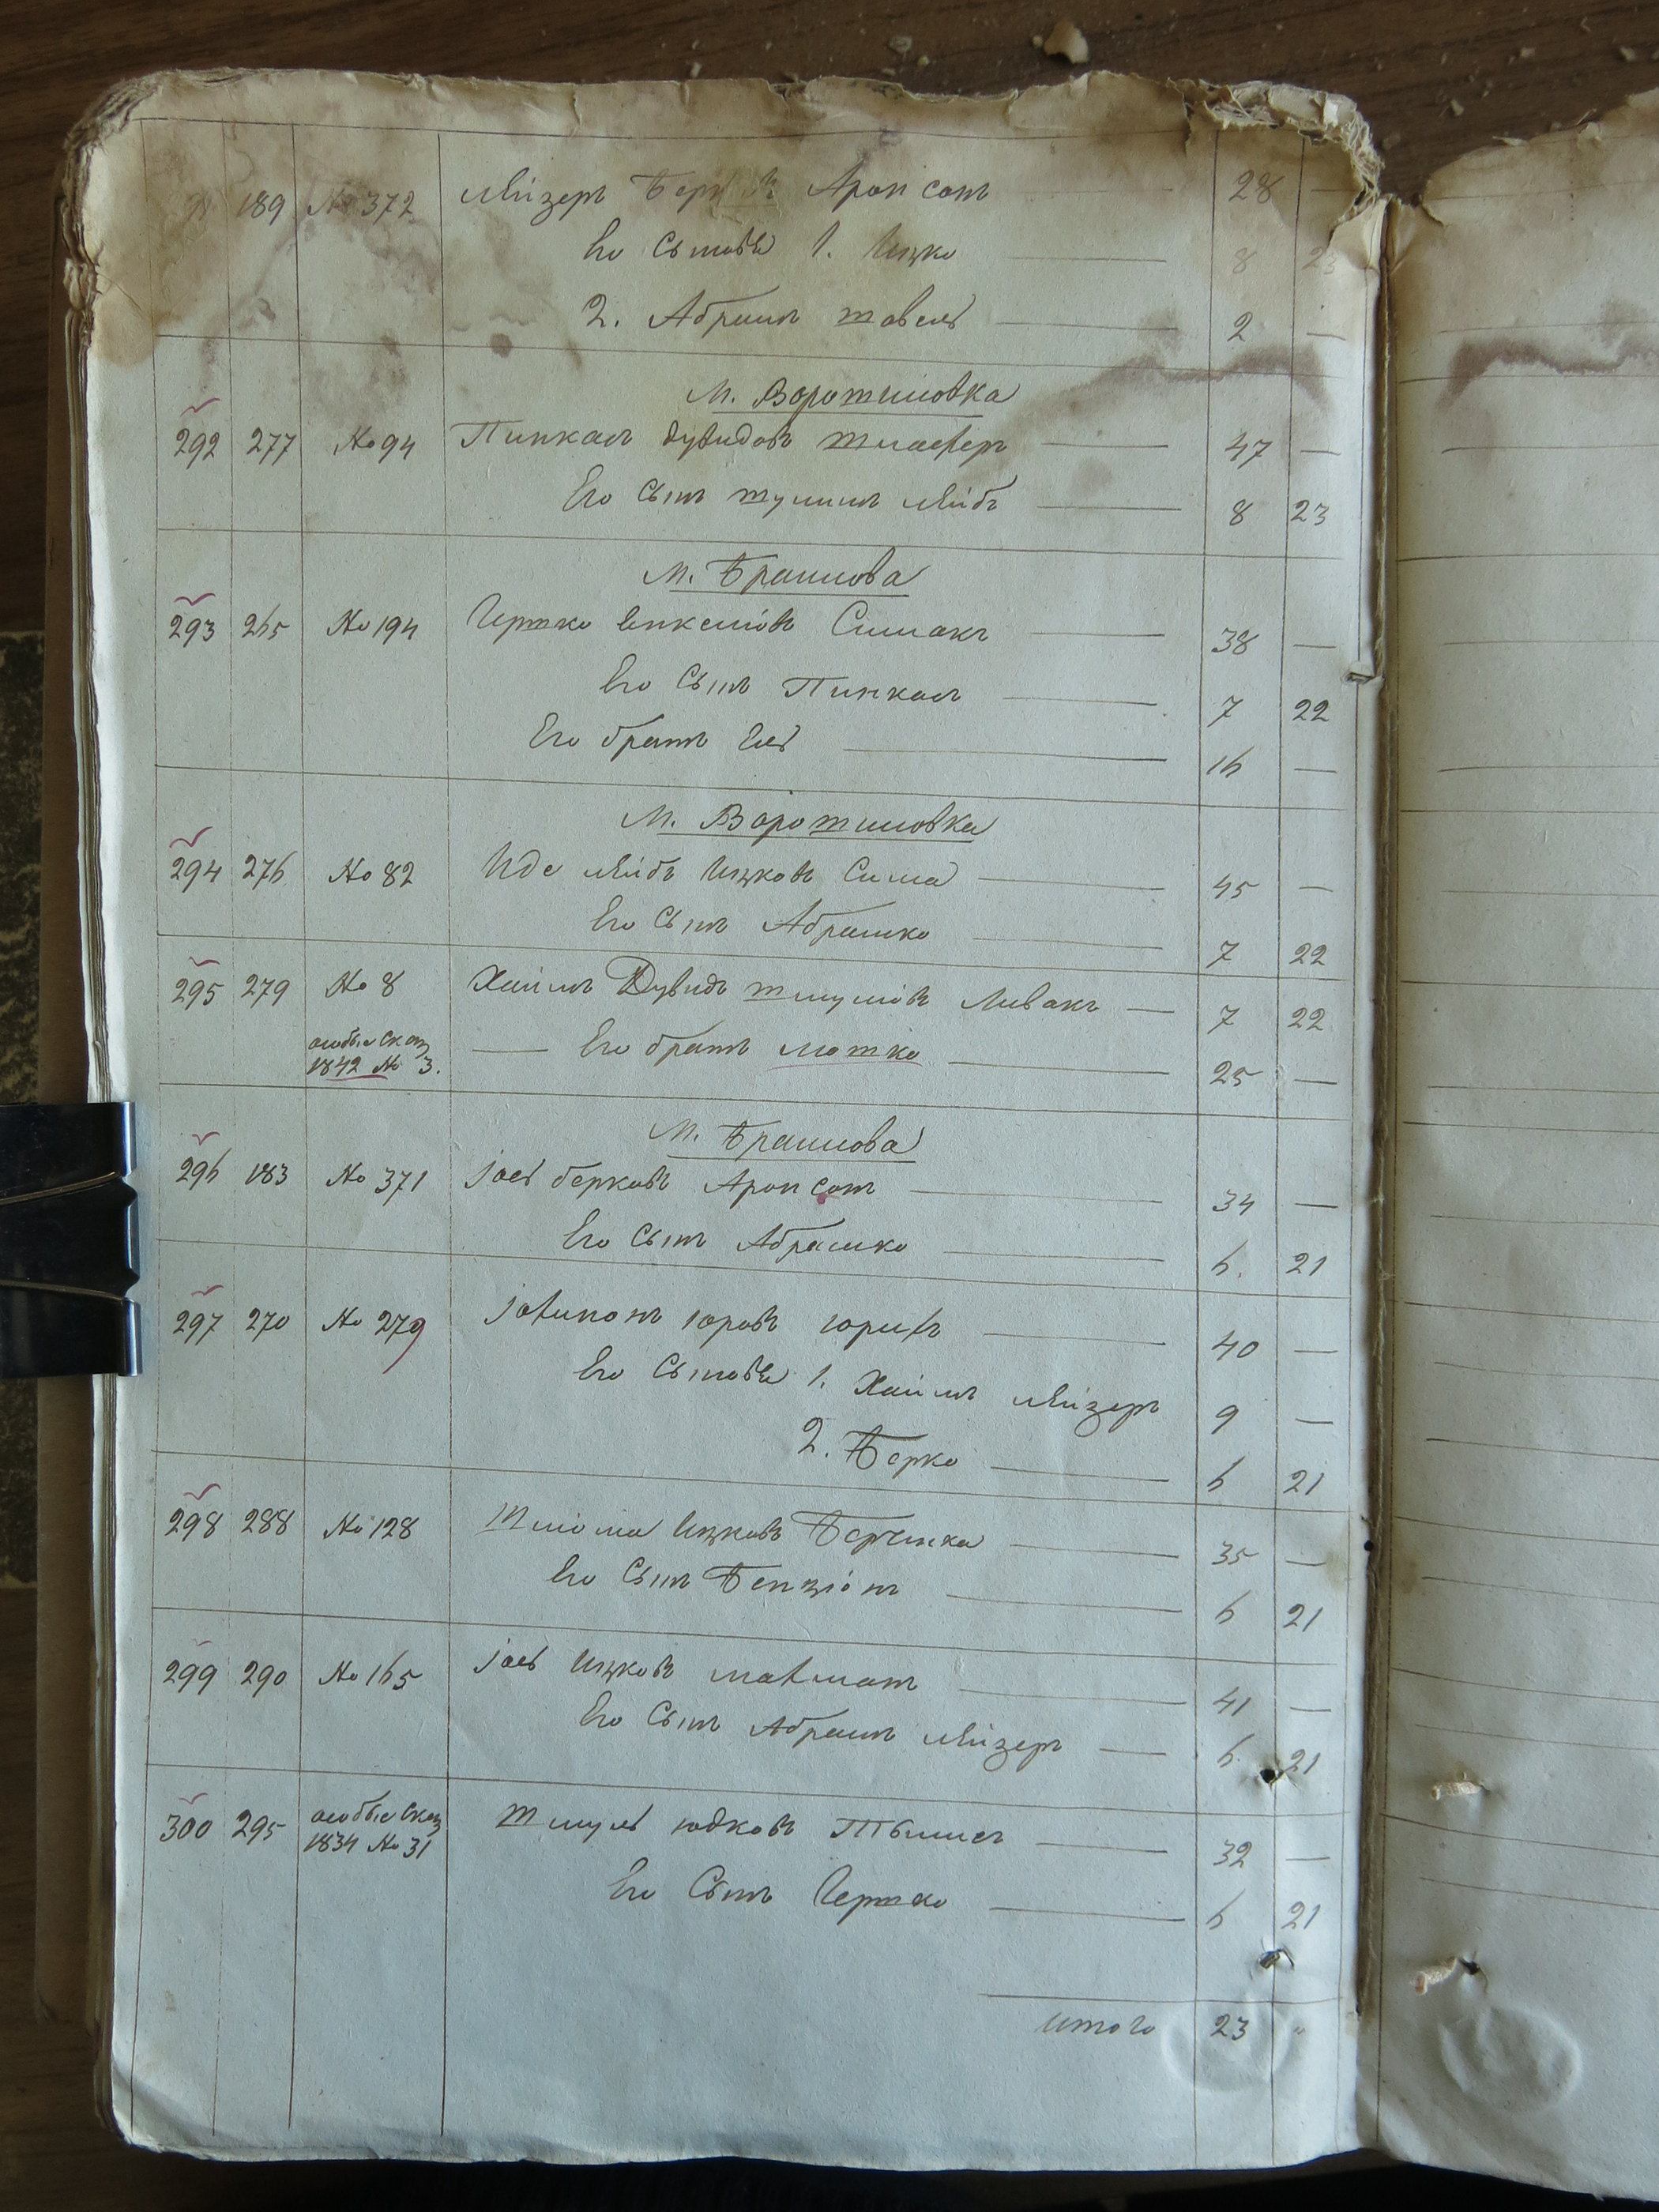 189 № 372 Лейзеръ Берковъ Аронсонъ 28 —
Его Сыновья 1. Ицко 8 23
2. Абрамъ шовель 2 —
М. Ворошиловка
292 277 № 94 Пинкасъ дувидовъ шмаферъ 47 —
Его Сынъ шулимъ лейбъ 8 23
М. Браилова
293 265 № 194 Гершко Симакъ 38 —
Его Сынъ Пинкасъ 7 22
Его братъ 16 —
М. Ворошиловка
294 276 № 82 Иде лейбъ Ицковъ Сима 45 —
Его Сынъ Абрамко 7 22
295 279 № 8 Хаимъ Дувидъ шмулiовъ Ливакъ — 7 22
особыя Сказ
1842 № 3. — Его братъ мошко 25 —
М. Браилова
296 183 № 371 Іосъ берковъ Аронсонъ 34 —
Его Сынъ Абрамко 6. 21
297 270 № 279 юровъ 40 —
Его Сыновья 1. Хаимъ лейзеръ 9 —
2. Берко 6 21
298 288 № 128 Шлiома Ицковъ 35 —
Его Сынъ Бенцiонъ 6 21
299 290 № 165 Іосъ Ицковъ 41 —
Его Сынъ Абрамъ лейзеръ — 6. 21
300 295 особыя Сказ
1834 № 31 Шмуль юдковъ 32 —
Его Сынъ Гершко 6 21
итого 23 "